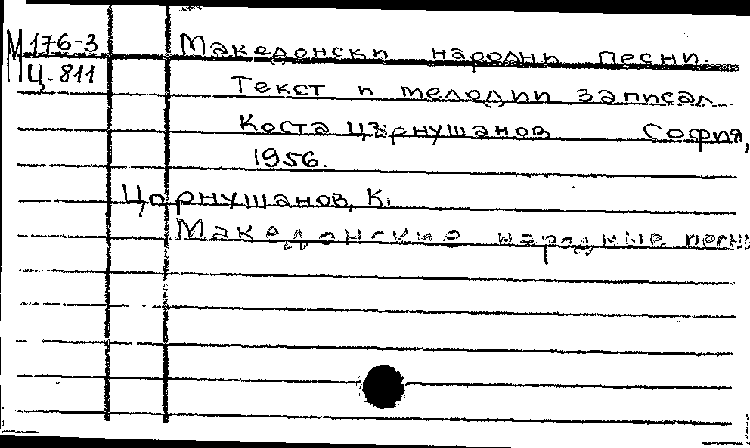 М 176-3
Ц-811
Македонски народни песни.
Текст и мелодии записал
Коста Църнушанов София,
1956.
Църнушанов, К.
Македонские народные песни